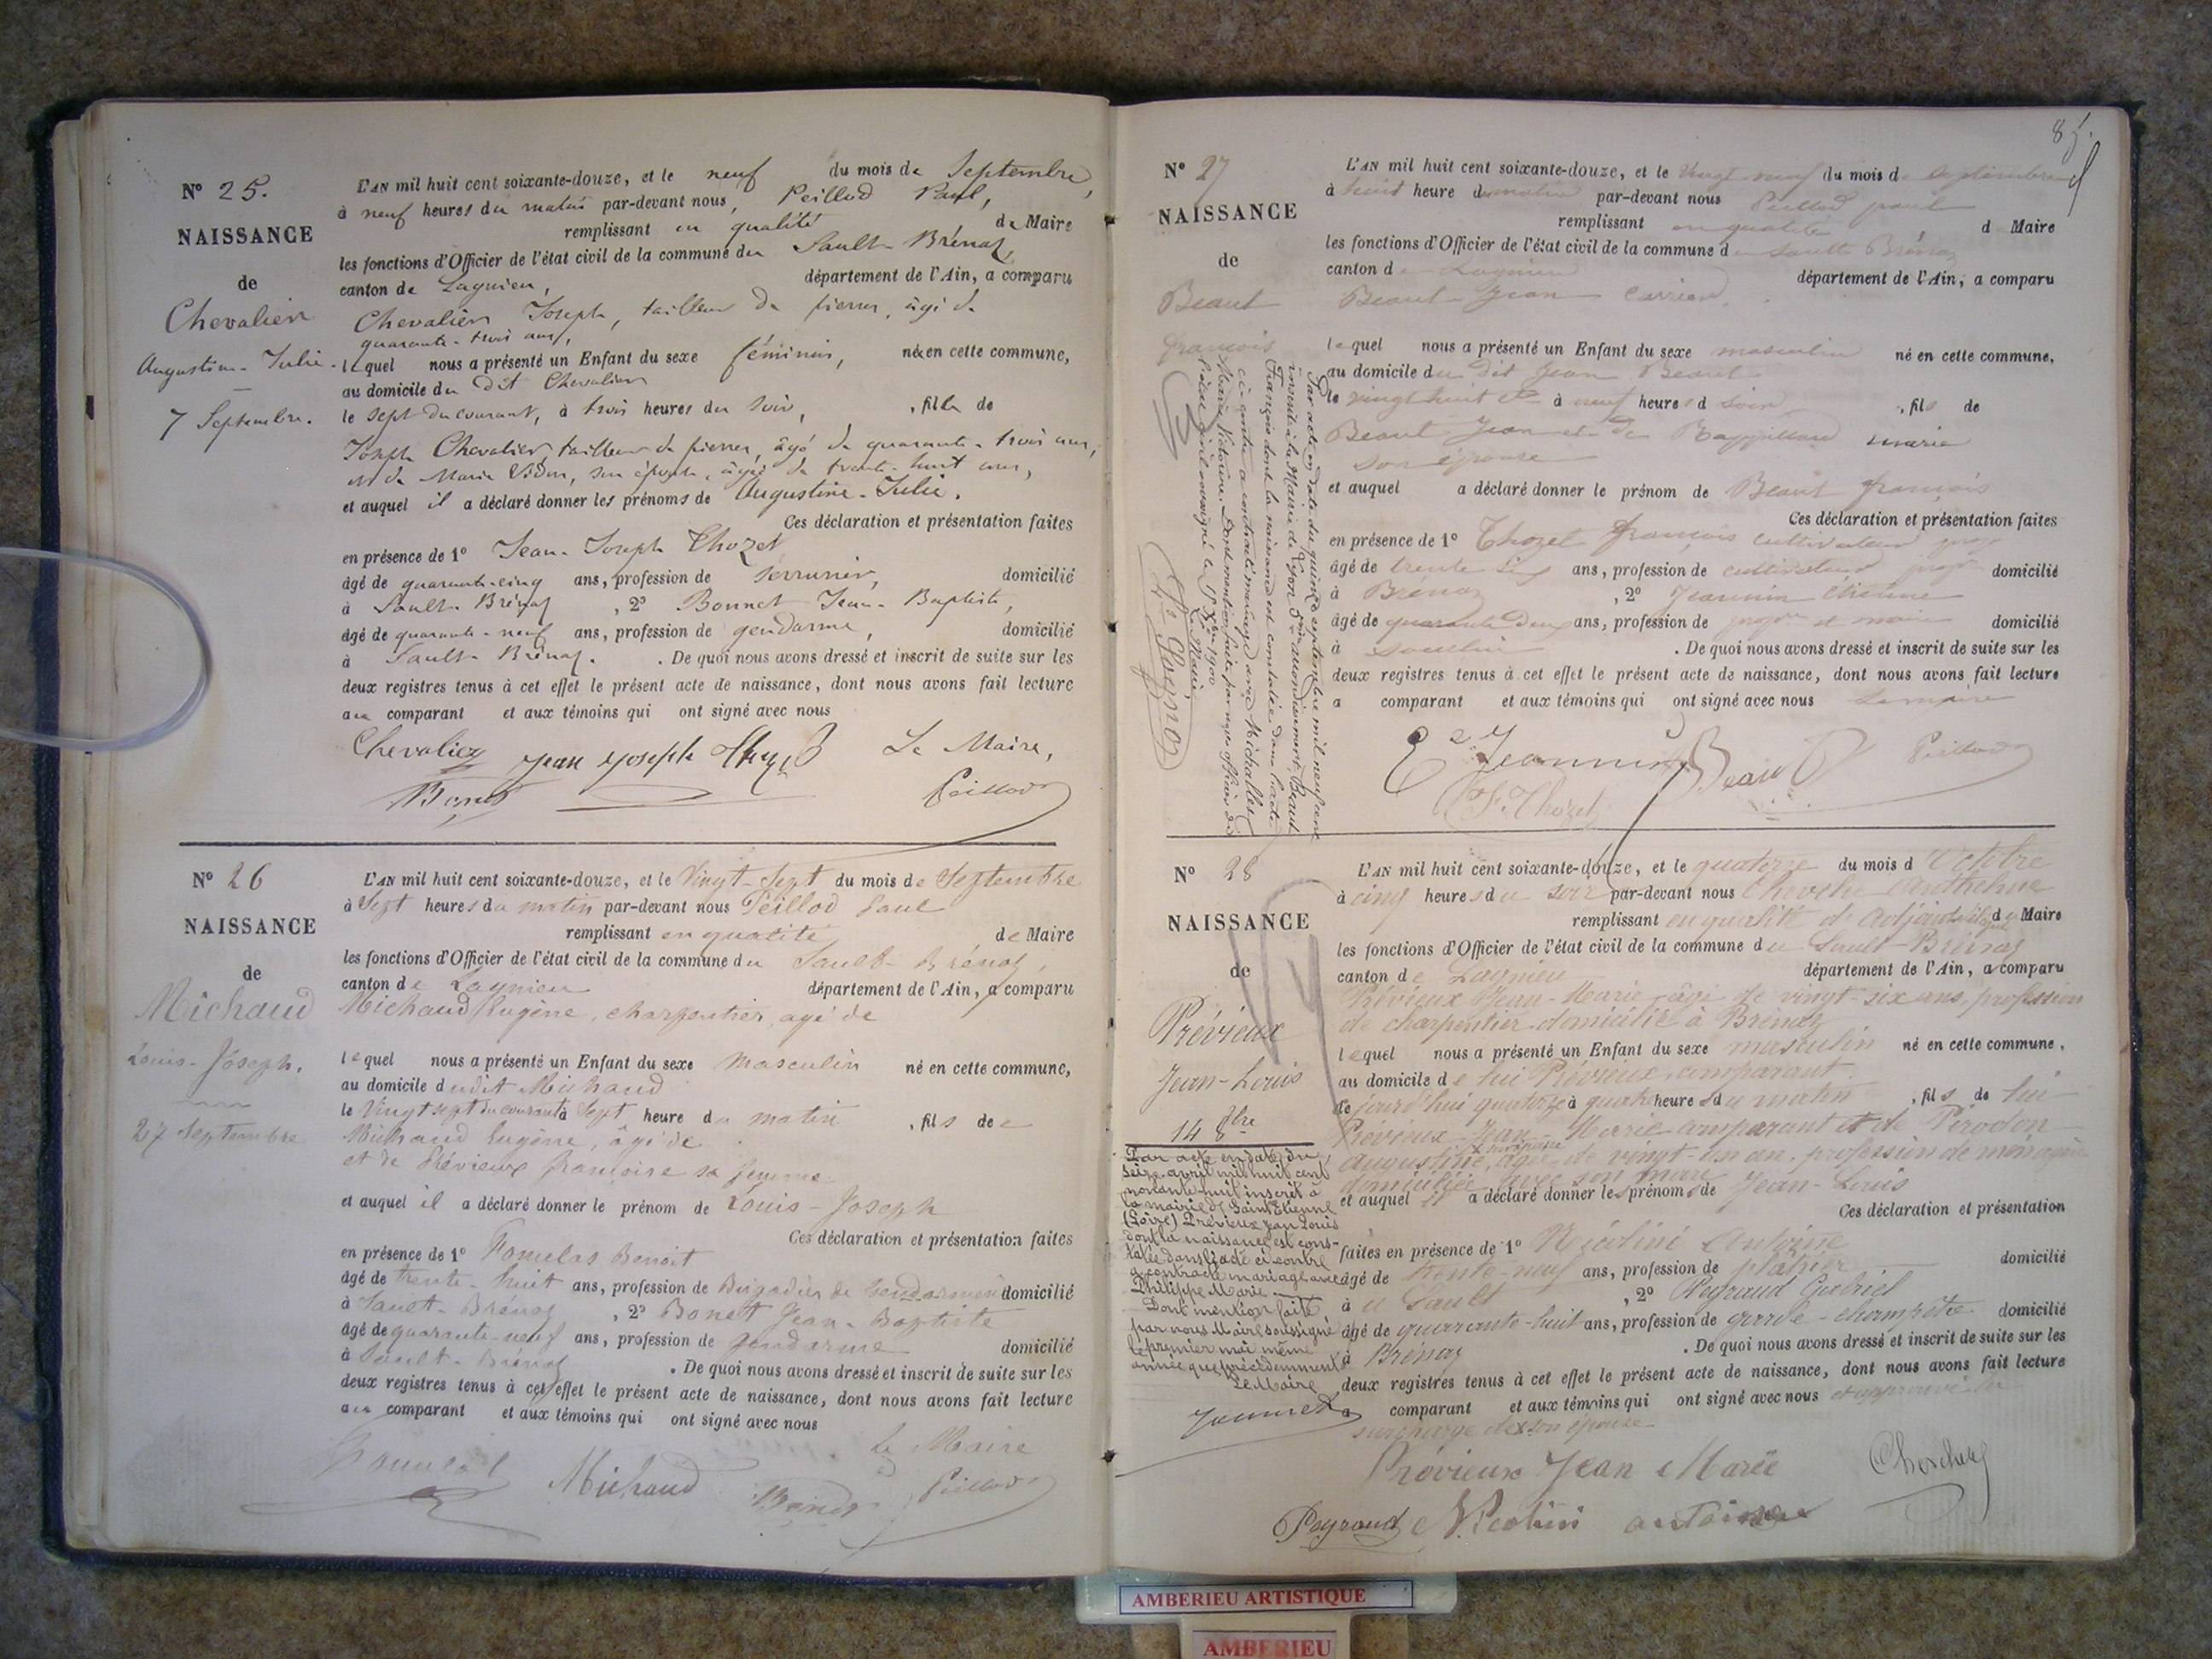 N° 25.
NAISSANCE
de
Chevalier
Augustine-Julie.
7 Septembre.
L'AN mil huit cent soixante-douze, et le neuf du mois de Septembre,
à neuf heures du matin par-devant nous, Peillod Paul,
remplissant en qualité de Maire
les fonctions d'Officier de l'état civil de la commune du Sault-Brénaz,
canton de Lagnieu, département de l'Ain, a comparu
Chevalier Joseph, tailleur de pierres, âgé de
quarante-trois ans,
lequel nous a présenté un Enfant du sexe féminin, née en cette commune,
au domicile du dit Chevalier
le sept du courant, à trois heures du soir, , fille de
Joseph Chevalier, tailleur de pierres, âgé de quarante-trois ans,
et de Marie son épouse, âgée de trente-huit ans,
et auquel il a déclaré donner les prénoms de Augustine-Julie.
Ces déclaration et présentation faites
en présence de 1° Jean-Joseph Thozet
âgé de quarante-cinq ans, profession de serrurier, domicilié
à Sault-Brénaz , 2° Bonnet Jean-Baptiste,
âgé de quarante-neuf ans, profession de gendarme, domicilié
à Sault-Brénaz. . De quoi nous avons dressé et inscrit de suite sur les
deux registres tenus à cet effet le présent acte de naissance, dont nous avons fait lecture
au comparant et aux témoins qui ont signé avec nous
Chevalier Jean Joseph Le Maire,
Peillod
N° 26
NAISSANCE
de
Michaud
Louis-Joseph.
27 Septembre
L'AN mil huit cent soixante-douze, et le Vingt-Sept du mois de Septembre
à Sept heures du matin par-devant nous Peillod Paul
remplissant en qualité de Maire
les fonctions d'Officier de l'état civil de la commune du Sault-Brénaz,
canton de Lagnieu département de l'Ain, a comparu
Michaud Eugène, charpentier, agé de
lequel nous a présenté un Enfant du sexe masculin né en cette commune,
au domicile dudit Michaud
le Vingt sept du courant à Sept heure du matin , fils de
Michaud Eugène, âgé de
et de Prévieux françoise sa femme
et auquel il a déclaré donner le prénom de Louis-Joseph
Ces déclaration et présentation faites
en présence de 1° Benoit
âgé de trente-huit ans, profession de Brigadier de Gendarmerie domicilié
à Sault-Brénaz , 2° Bonet Jean-Baptiste
âgé de quarante-neuf ans, profession de gendarme domicilié
à Sault-Brénaz . De quoi nous avons dressé et inscrit de suite sur les
deux registres tenus à cet effet le présent acte de naissance, dont nous avons fait lecture
au comparant et aux témoins qui ont signé avec nous
Le Maire
Michaud Peillod
85.
N° 27
NAISSANCE
de
Beaut
françois
L'AN mil huit cent soixante-douze, et le Vingt-neuf du mois de Septembre
à huit heure du matin par-devant nous Peillod paul
remplissant en qualité d Maire
les fonctions d'Officier de l'état civil de la commune de Sault Brénaz
canton de Lagnieu département de l'Ain, a comparu
Beaut Jean carrier
lequel nous a présenté un Enfant du sexe masculin né en cette commune,
au domicile du dit Jean Beaut
le vingt huit à neuf heures d soir , fils de
Beaut Jean et de marie
son épouse
et auquel a déclaré donner le prénom de Beaut françois
Ces déclaration et présentation faites
en présence de 1° Thozet françois cultivateur
âgé de trente ans, profession de cultivateur domicilié
à Brénaz , 2° Jeannin
âgé de quarante deux ans, profession de domicilié
à . De quoi nous avons dressé et inscrit de suite sur les
deux registres tenus à cet effet le présent acte de naissance, dont nous avons fait lecture
a comparant et aux témoins qui ont signé avec nous Le maire
E Jeannin Beaut Peillod
F. Thozet
Par acte en date du quinze septembre mil neuf cent
inscrit à la Mairie de Lyon 5me arrondissement, Beaut
François dont la naissance est constatée dans l'acte
ci-contre a contracté mariage avec Michallet
Marie Victorine. Dont mention faite par nous officier de
l'état civil soussigné le 1900
Le Maire,
N° 28
NAISSANCE
de
Prévieux
Jean-Louis
14 8bre
L'AN mil huit cent soixante-douze, et le quatorze du mois d'Octobre
à cinq heures du soir par-devant nous Anthelme
remplissant en qualité d'adjoint délégué du Maire
les fonctions d'Officier de l'état civil de la commune du Sault-Brénaz
canton de Lagnieu département de l'Ain, a comparu
Prévieux Jean-Marie, âgé de vingt-six ans, profession
de charpentier domicilié à Brénaz
lequel nous a présenté un Enfant du sexe masculin né en cette commune,
au domicile de lui Prévieux comparant.
de jourd'hui quatorze à quatre heures du matin , fils de lui
Prévieux Jean-Marie comparant et de Pirodon
augustine, son épouse, âgée de vingt-un an, profession de ménagère
domiciliée avec son mari
et auquel il a déclaré donner les prénoms de Jean-Louis
Ces déclaration et présentation
faites en présence de 1° Nicolini Antoine
âgé de trente-neuf ans, profession de plâtrier domicilié
à u Sault , 2° Peyraud Gabriel
âgé de quarante-huit ans, profession de garde-champêtre domicilié
à Brénaz . De quoi nous avons dressé et inscrit de suite sur les
deux registres tenus à cet effet le présent acte de naissance, dont nous avons fait lecture
a comparant et aux témoins qui ont signé avec nous et approuvé la
surcharge de son épouse
Prévieux Jean Marie
Peyraud Nicolini antoine
Par acte en date du
seize avril mil huit cent
nonante huit inscrit à
la mairie de Saint Etienne
(Loire) Prévieux Jean Louis
dont la naissance est cons-
tatée dans l'acte ci-contre
a contracté mariage avec
Philippe Marie
Dont mention faite
par nous Maire soussigné
le premier mai même
année que précédemment
Le Maire
AMBERIEU ARTISTIQUE
AMBERIEU